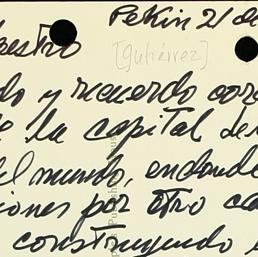 Pekin 21 de
[Gutiérrez]
aestro
do y recuerdo cor
la capital de
el mundo, endonde
iones por otro ca
construyendo